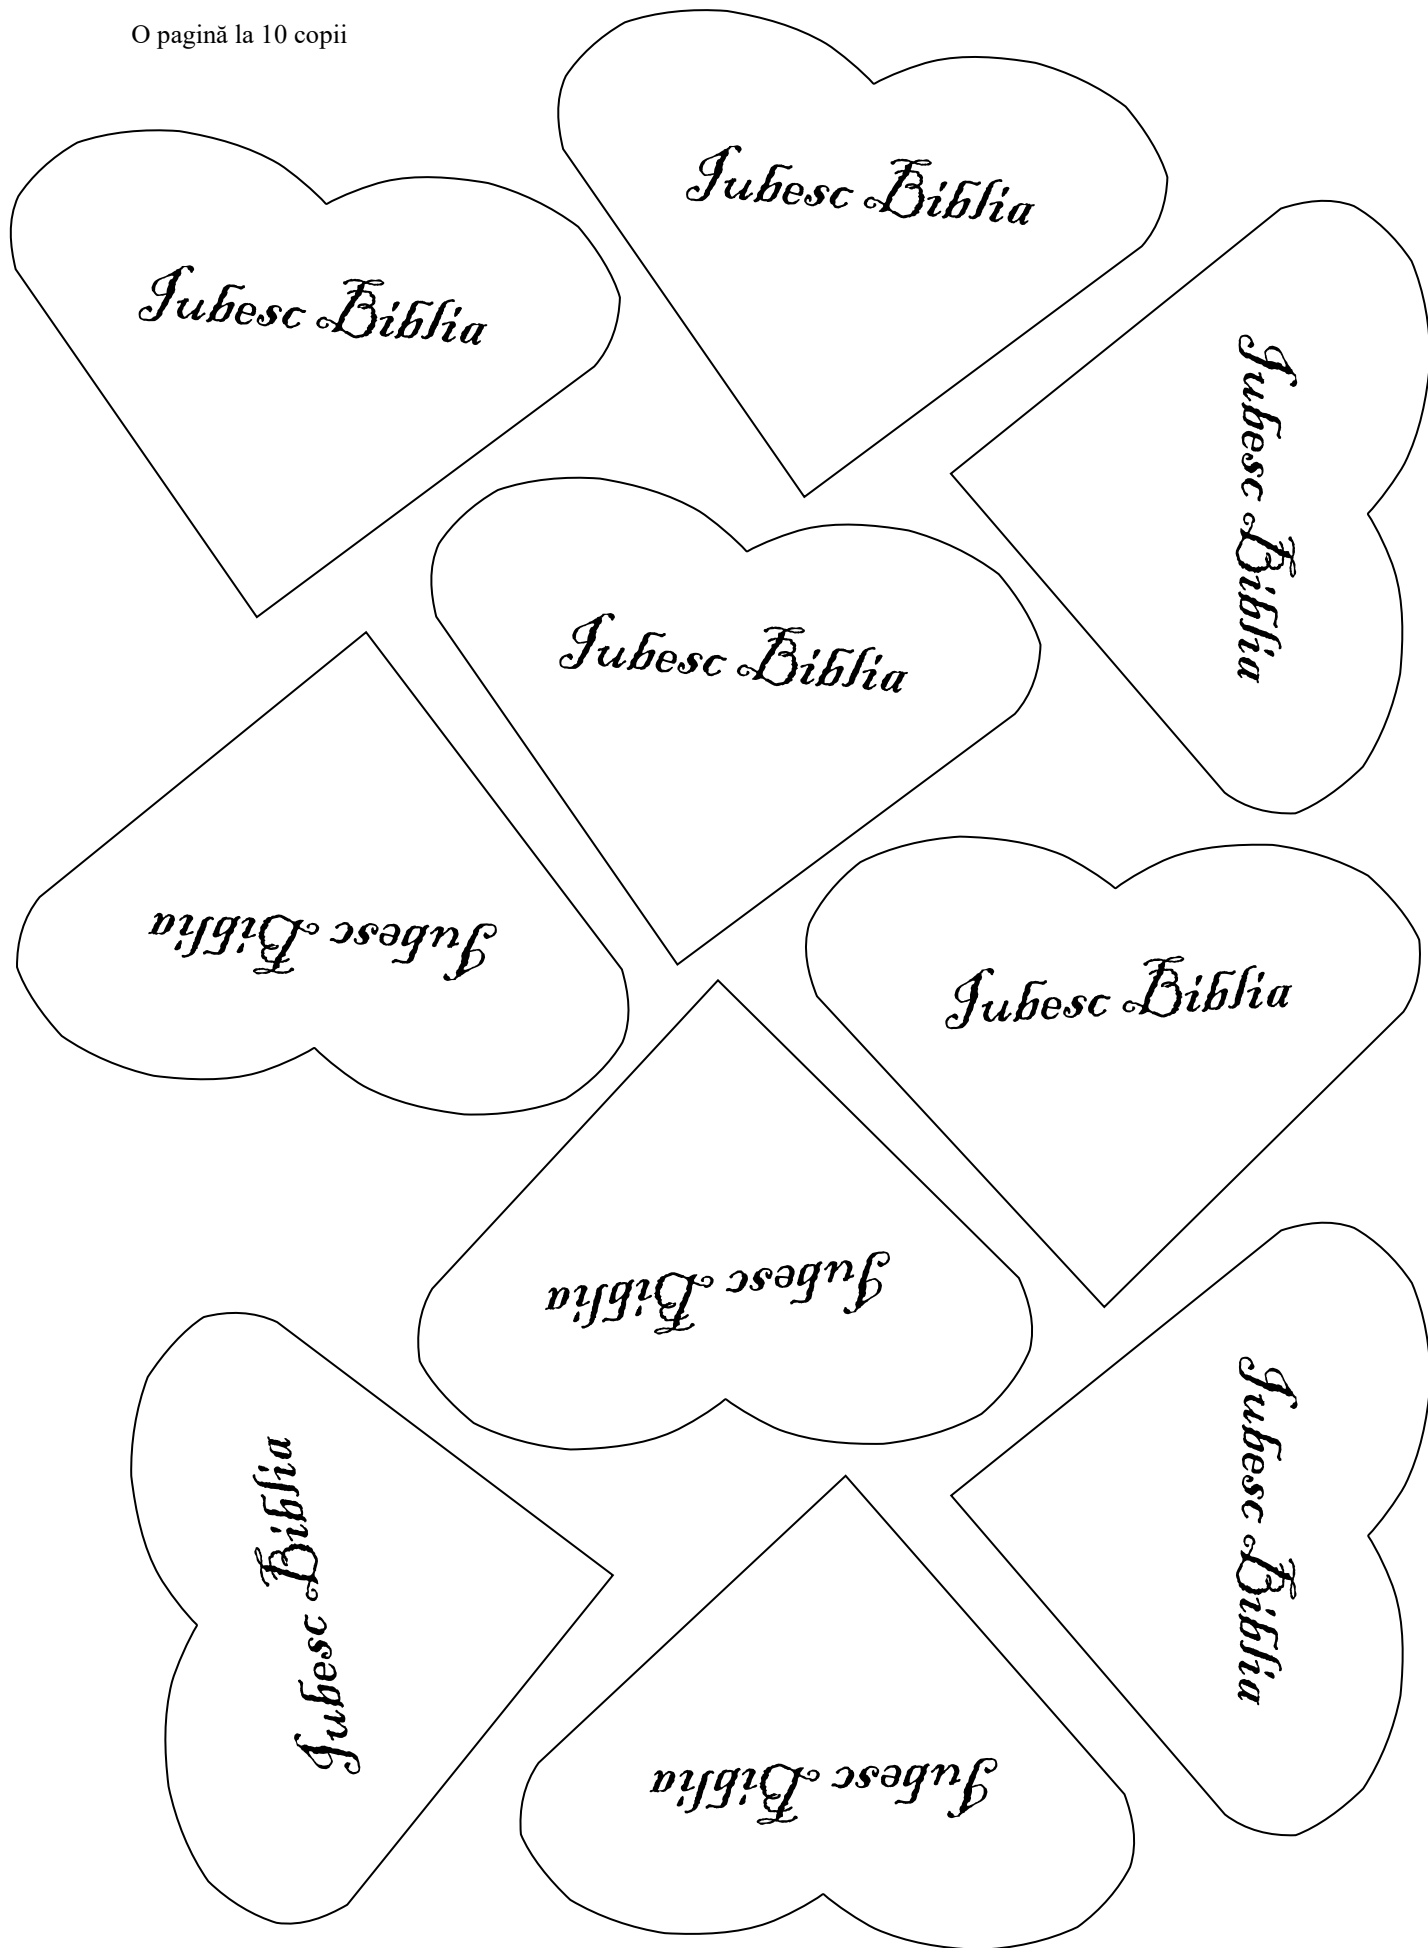 O pagină la 10 copii
Iubesc Biblia
Iubesc Biblia
Iubesc Biblia
Iubesc Biblia
Iubesc Biblia
Iubesc Biblia
Iubesc Biblia
Iubesc Biblia
Iubesc Biblia
Iubesc Biblia